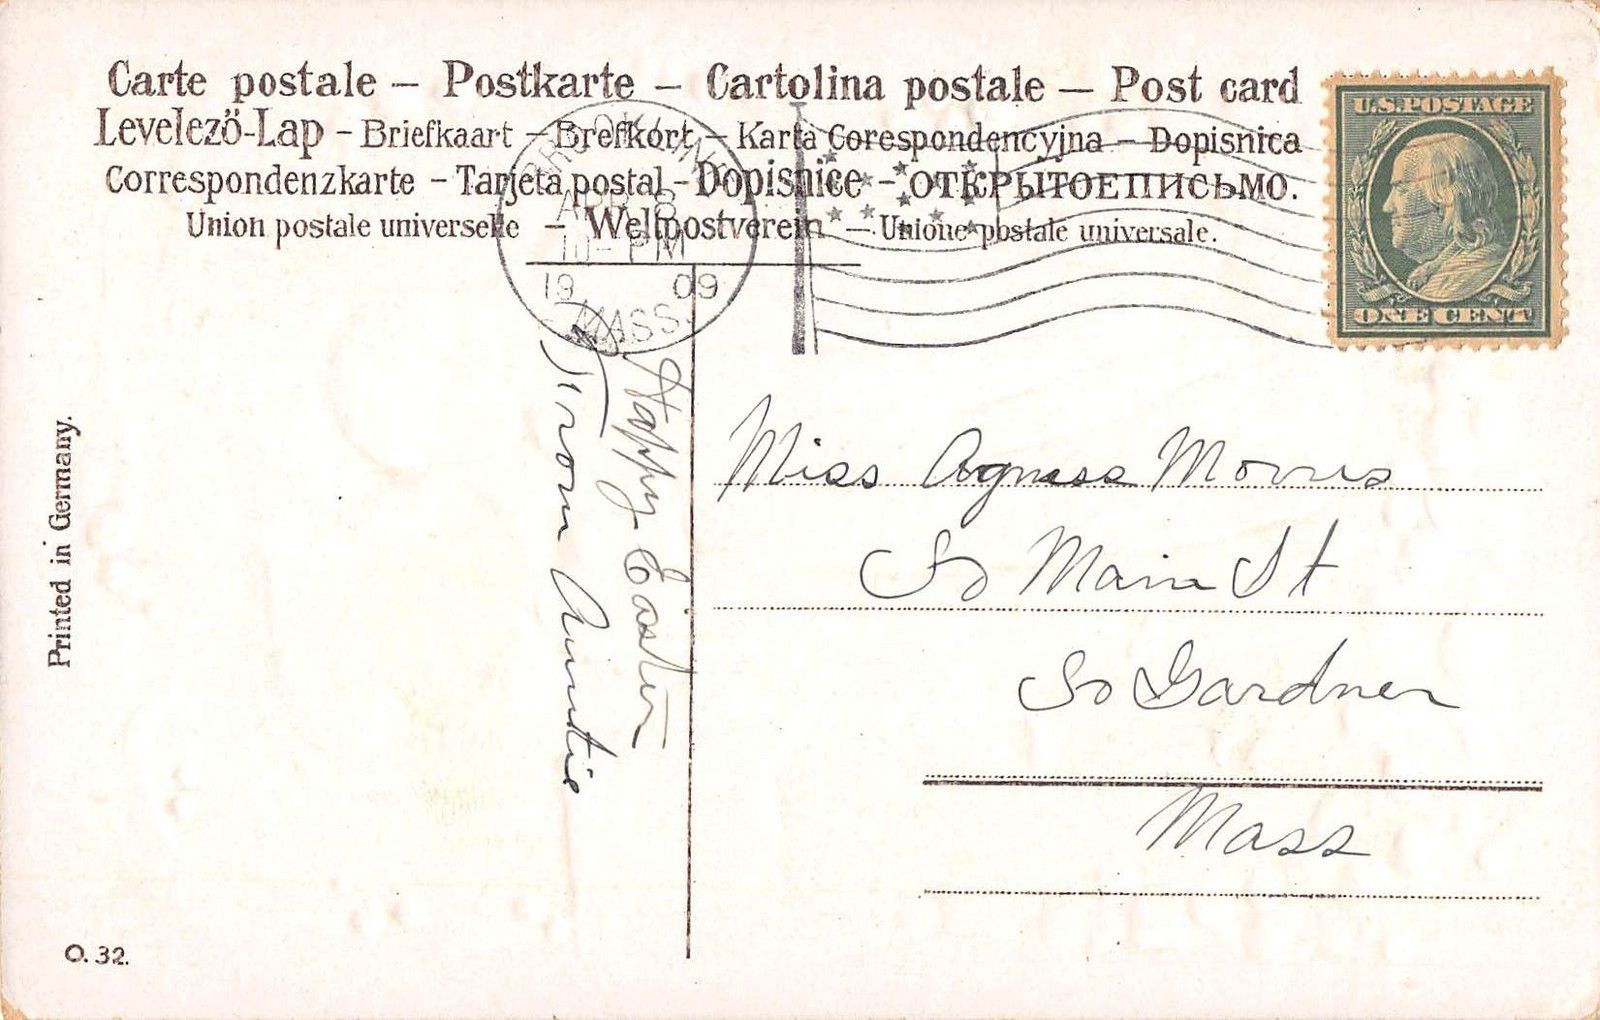 Carte postale – Postkarte – Cartolina postale – Post card
Levelező-Lap – Briefkaart – Brefkort – Karta Corespondencyjna – Dopisnica
Correspondenzkarte – Tarjeta postal – Dopisnice – ОТКРЫТОЕПИСЬМО.
Union postale universelle – Weltpostverein – Unione postale universale.
U.S. POSTAGE
ONE CENT
BROOKLINE
APR 8
10 - PM
19 09
MASS.
Happy Easter
From Auntie
Miss Agness Morris
So Main St
So Gardner
Mass
Printed in Germany.
O. 32.